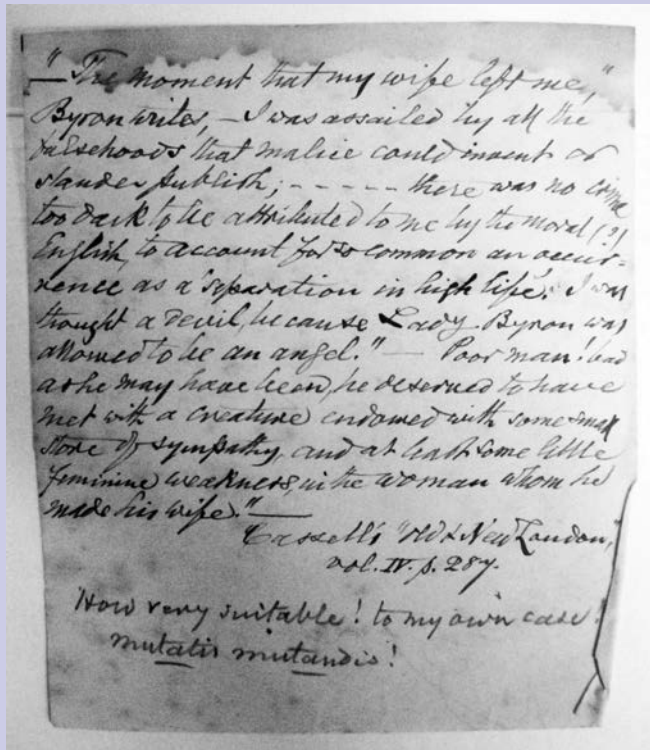 — "The moment that my wife left me,"
Byron writes, — I was assailed by all the
falsehoods that malice could invent or
slander publish; - - - - - there was no crime
too dark to be attributed to me by the moral (?)
English, to account for so common an occur-
rence as a 'separation in high life.' I was
thought a devil, because Lady Byron was
allowed to be an angel." — Poor man! bad
as he may have been, he deserved to have
met with a creature endowed with some small
store of sympathy, and at least some little
feminine weakness, in the woman whom he
made his wife." —
"Cassell's "Old & New London,
vol. IV. p. 287.
How very suitable! to my own case!
mutatis mutandis!